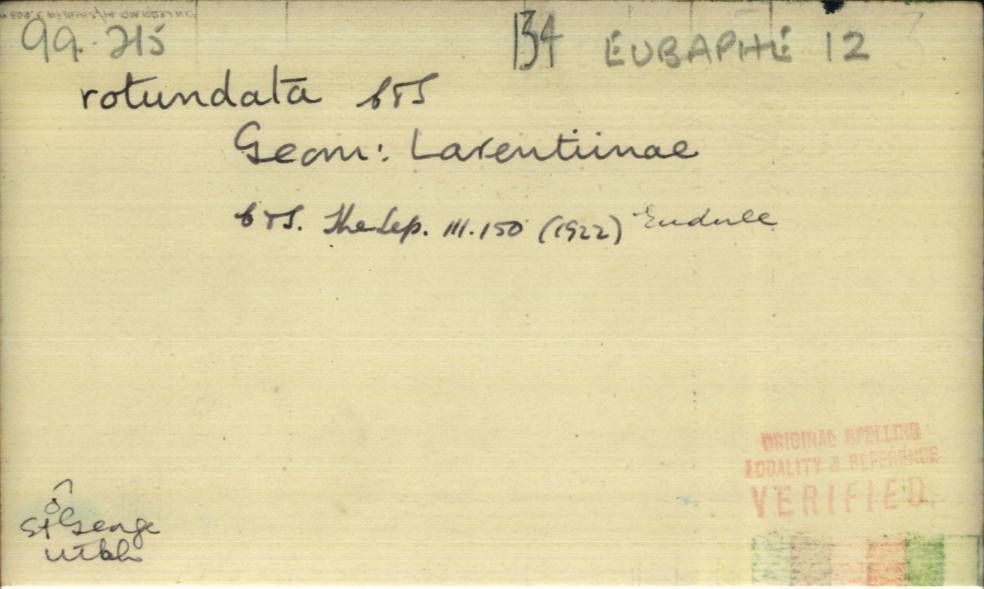 99.215 134 EUBAPHE 12
rotundata B&S
Geom: Larentiinae
B&S. The Lep. III. 150 (1922) Eudule
ORIGINAL SPELLING
LOCALITY & REFERENCE
VERIFIED.
St George
Utah